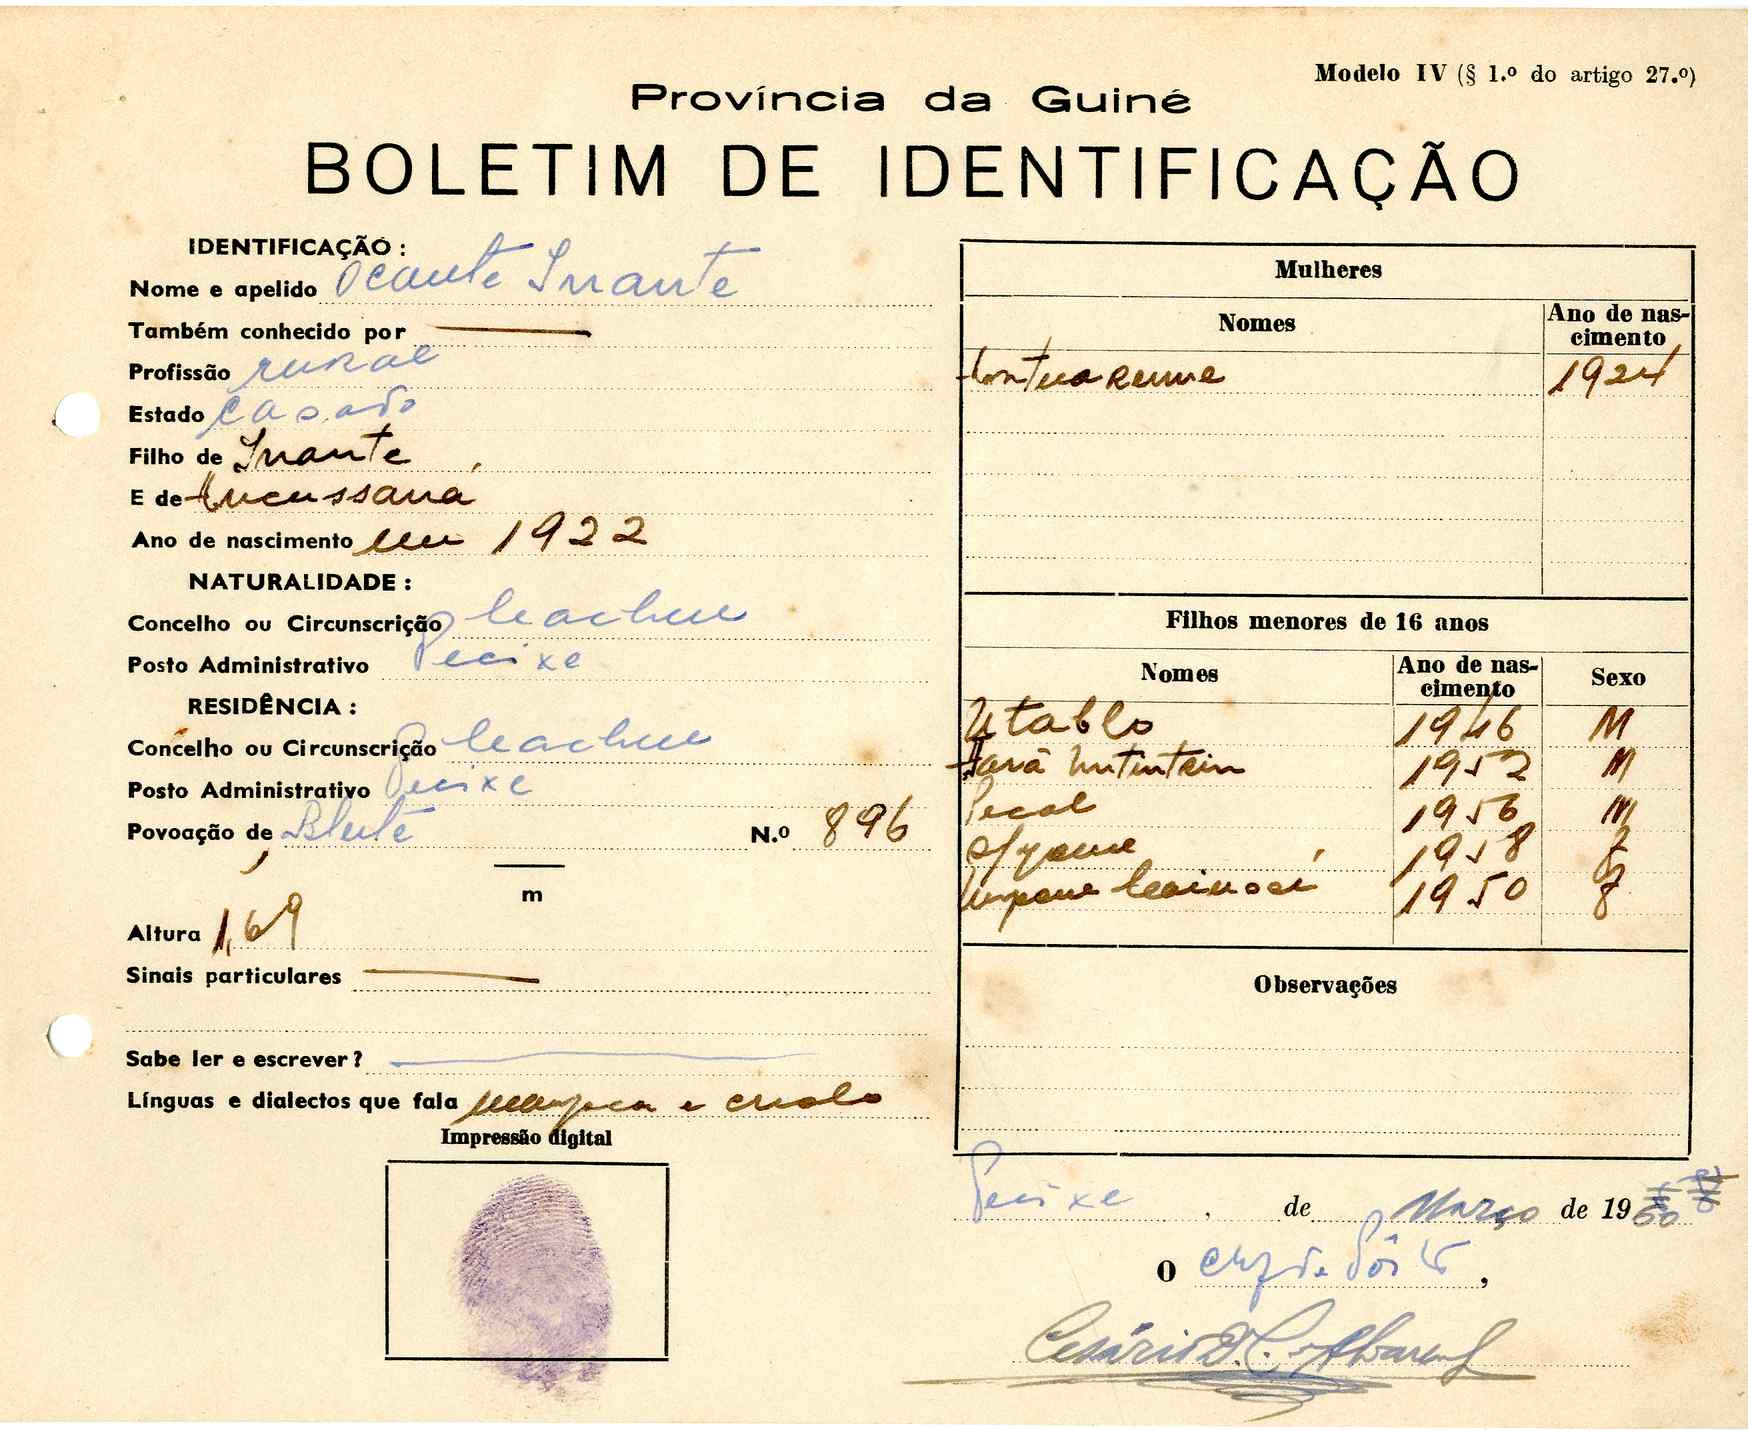 Modelo IV (§ 1.º do artigo 27.º)
Província da Guiné
BOLETIM DE IDENTIFICAÇÃO
IDENTIFICAÇÃO :
Nome e apelido Ocante Inante
Também conhecido por
Profissão rural
Estado casado
Filho de Inante
E de
Ano de nascimento em 1922
NATURALIDADE :
Concelho ou Circunscrição
Posto Administrativo Pecixe
RESIDÊNCIA :
Concelho ou Circunscrição
Posto Administrativo Pecixe
Povoação de N.º 896
m
Altura 1,69
Sinais particulares
Sabe ler e escrever?
Línguas e dialectos que fala e criolo
Impressão digital
Mulheres
Nomes Ano de nascimento
1924
Filhos menores de 16 anos
Nomes Ano de nascimento Sexo
Utablo 1946 M
1952 M
Pecal 1956 M
1958 F
1950 F
Observações
Pecixe , de Março de 1960
O chefe de Pôsto,